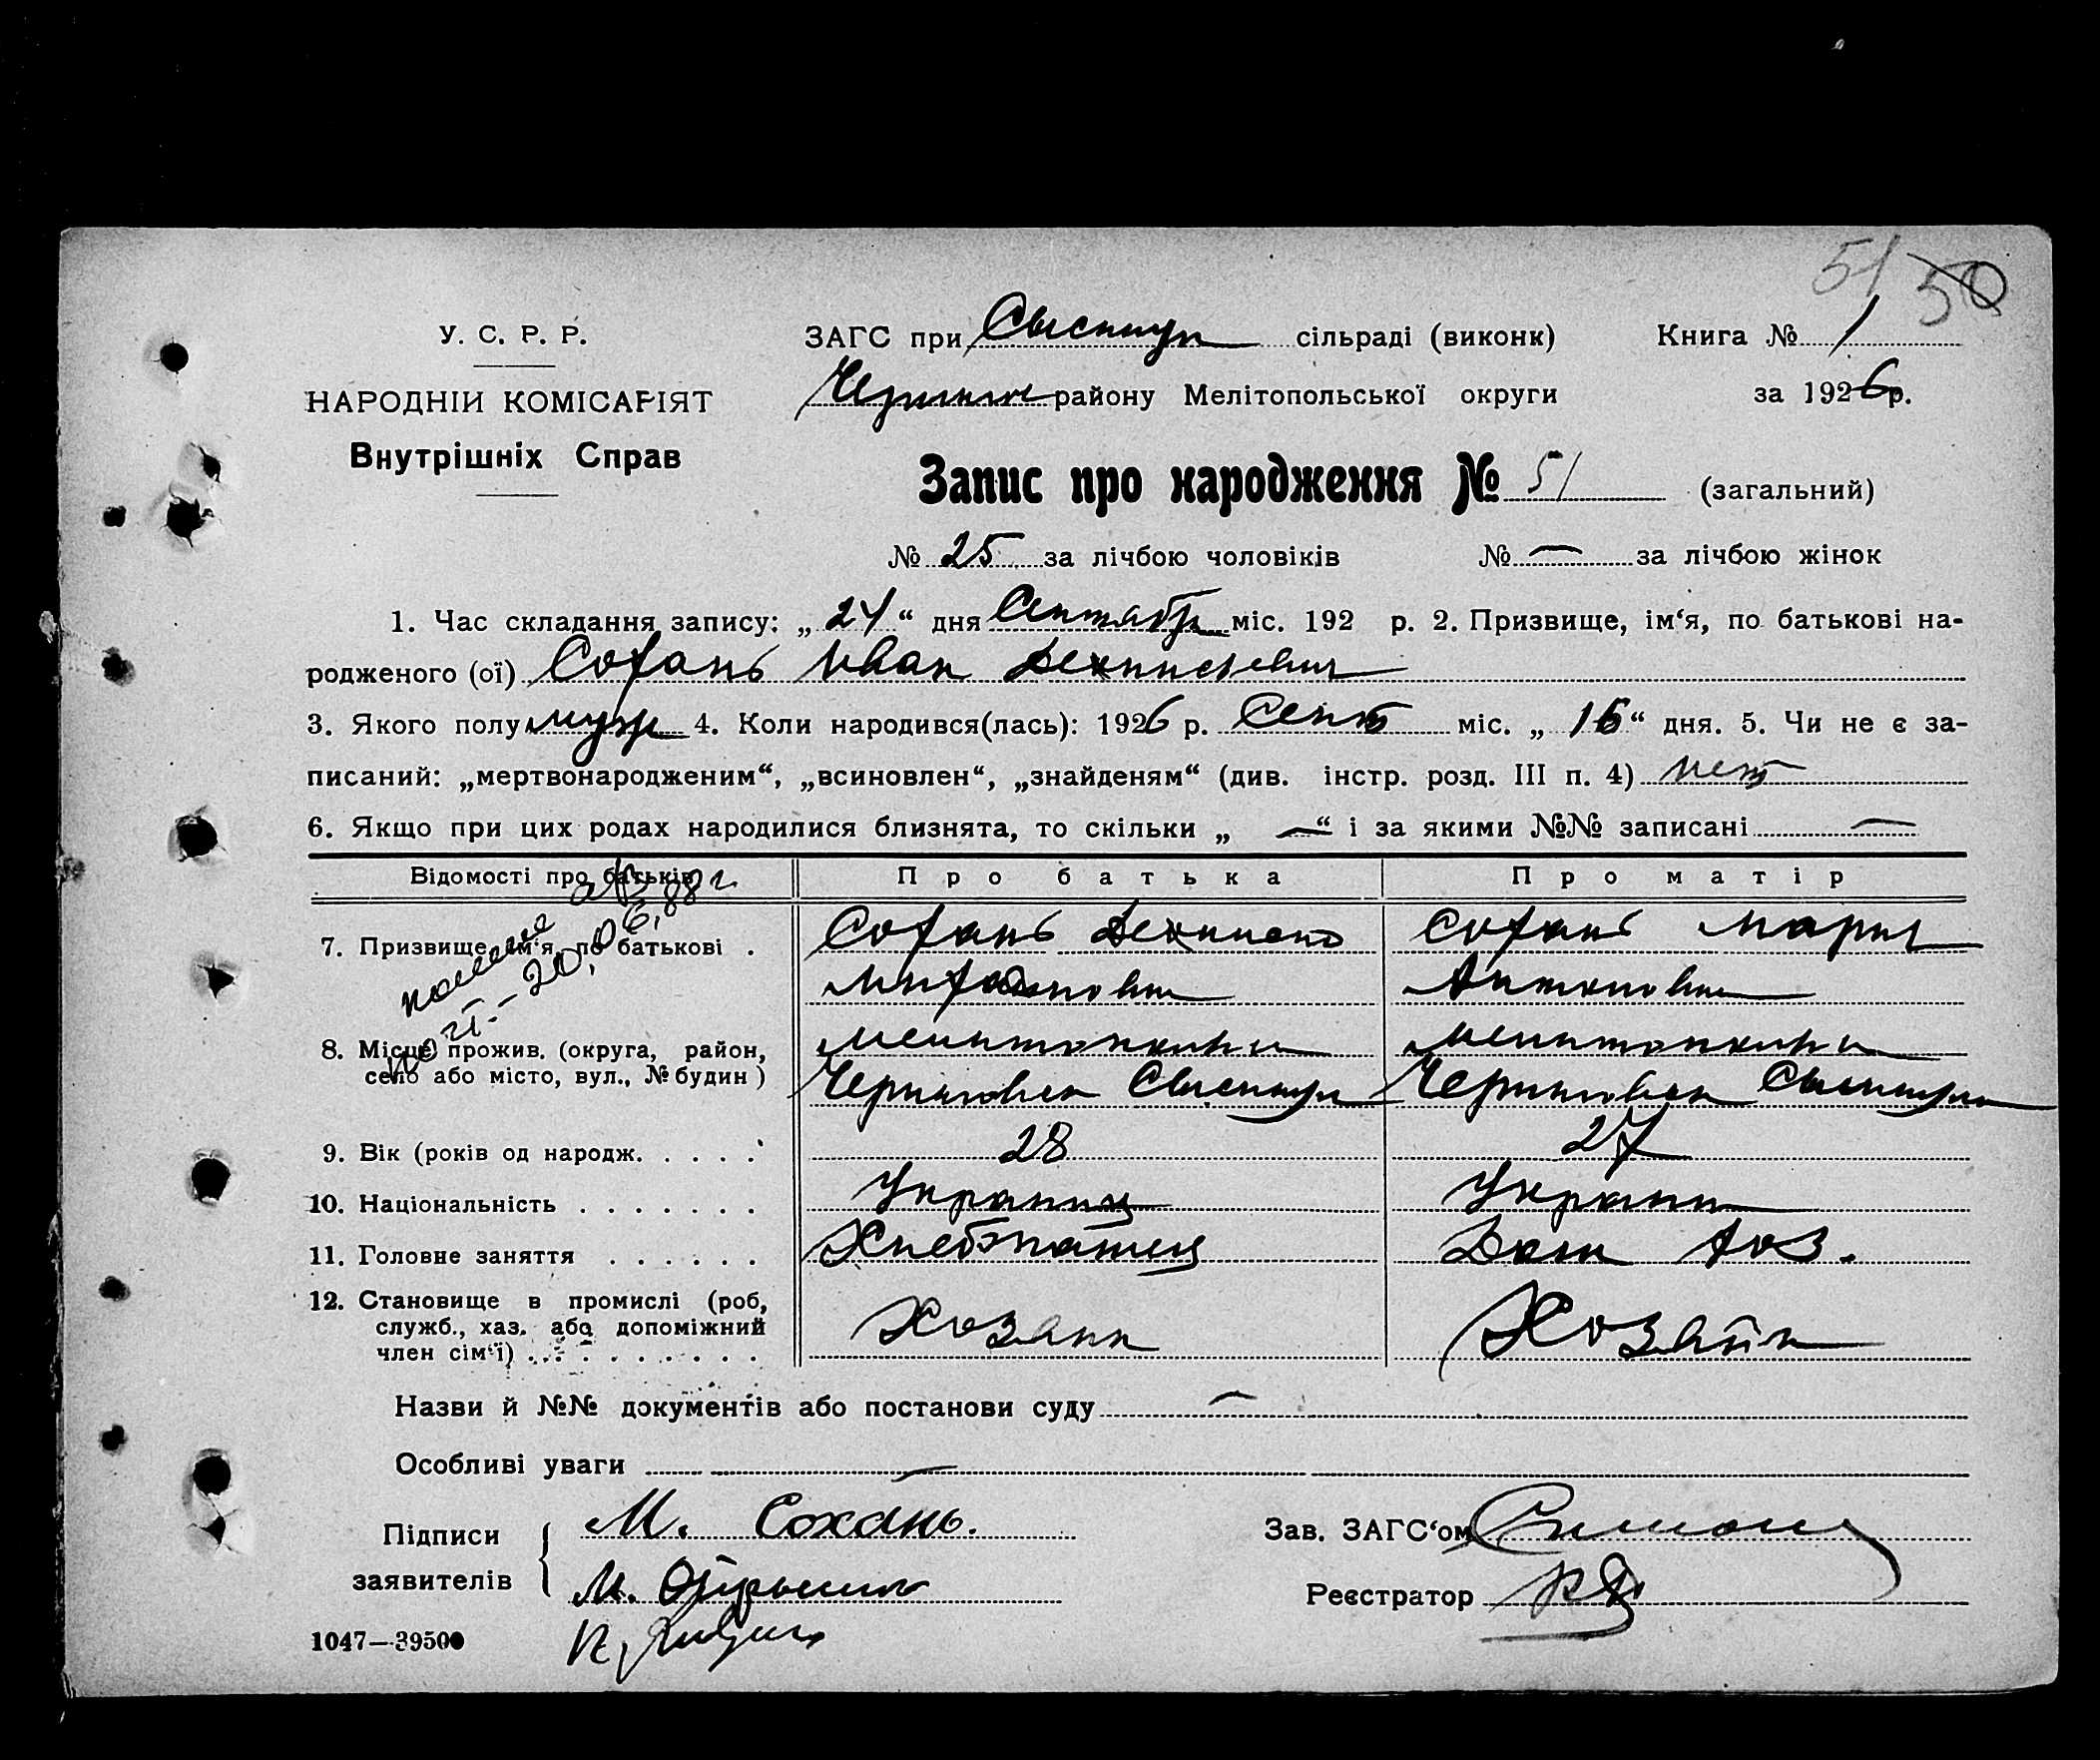 51 50
У. С. Р. Р.
НАРОДНІЙ КОМІСАРІЯТ
Внутрішніх Справ
ЗАГС при сільраді (виконк) Книга № 1
району Мелітопольської округи за 1926 р.
Запис про народження № 51 (загальний)
№ 25 за лічбою чоловіків № — за лічбою жінок
1. Час складання запису: „24“ дня Сентабр міс. 192 р. 2. Призвище, ім‘я, по батькові на-
родженого (ої) Сохань Иван
3. Якого полу муж 4. Коли народився(лась): 1926 р. Сент міс. „16“ дня. 5. Чи не є за-
писаний: „мертвонародженим“, „всиновлен“, „знайденям“ (див. інстр. розд. III п. 4) нет
6. Якщо при цих родах народилися близнята, то скільки „—“ і за якими №№ записані —
Відомості про батьків Про батька Про матір
7. Призвище, ім‘я, по батькові . Сохань Сохань Мария
Антоновна
8. Місце прожив. (округа, район,
село або місто, вул., № будин)
20.06.88 г.
9. Вік (років од народж. . . . . 28 27
10. Національність . . . . . . . Украинц Украин
11. Головне заняття . . . . . . Хлебопашец Дом хоз.
12. Становище в промислі (роб,
служб., хаз. або допоміжний
член сім‘ї) . . . . . . . . . Хозаин Хозайк
Назви й №№ документів або постанови суду —
Особливі уваги —
Підписи
заявителів
М. Сохань.
Зав. ЗАГС‘ом
Реєстратор
1047—39500